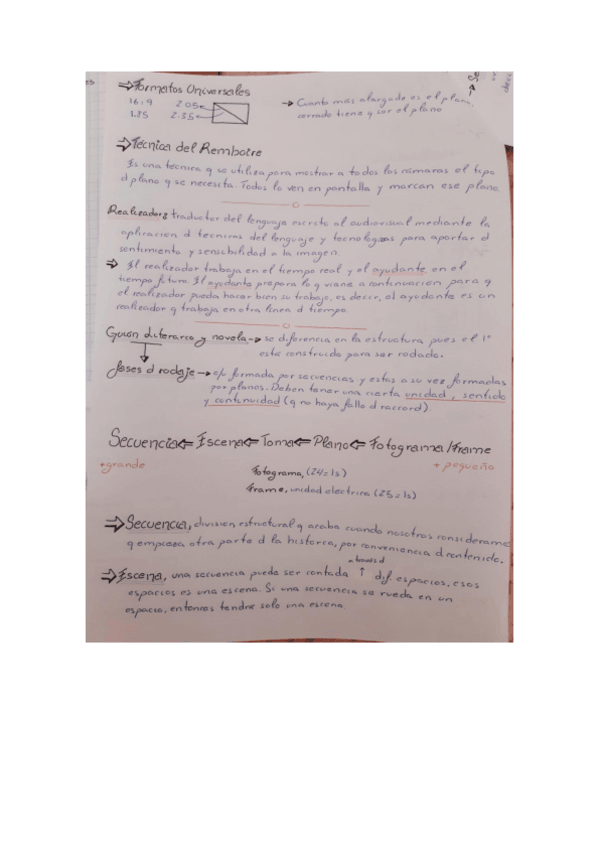 ⇒ Formatos Universales
16:9 2.05
1.35 2.35
→ Cuanto más alargado es el plano,
cerrado tiene q ser el plano
⇒ Técnica del Rembotre
Es una técnica q se utiliza para mostrar a todos los cámaras el tipo
d plano q se necesita. Todos lo ven en pantalla y marcan ese plano.
Realizador: traductor del lenguaje escrito al audiovisual mediante la
aplicación d técnicas del lenguaje y tecnologías para aportar d
sentimiento y sensibilidad a la imagen.
⇒ El realizador trabaja en el tiempo real y el ayudante en el
tiempo futuro. El ayudante prepara lo q viene a continuación para q
el realizador pueda hacer bien su trabajo, es decir, el ayudante es un
realizador q trabaja en otra línea d tiempo.
Guión literario y novela → se diferencia en la estructura pues el 1º
está construido para ser rodado.
fases d rodaje → formada por secuencias y estas a su vez formadas
por planos. Deben tener una cierta unidad, sentido
y continuidad (q no haya fallo d raccord).
Secuencia ⇐ Escena ⇐ Toma ⇐ Plano ⇐ Fotograma/Frame
+grande + pequeño
Fotograma, (24=1s)
Frame, unidad electrica (25=1s)
⇒ Secuencia, división estructural q acaba cuando nosotros consideramos
q empieza otra parte d la historia, por conveniencia d contenido.
a través d
⇒ Escena, una secuencia puede ser contada ↑ dif. espacios, esos
espacios es una escena. Si una secuencia se rueda en un
espacio, entonces tendré solo una escena.